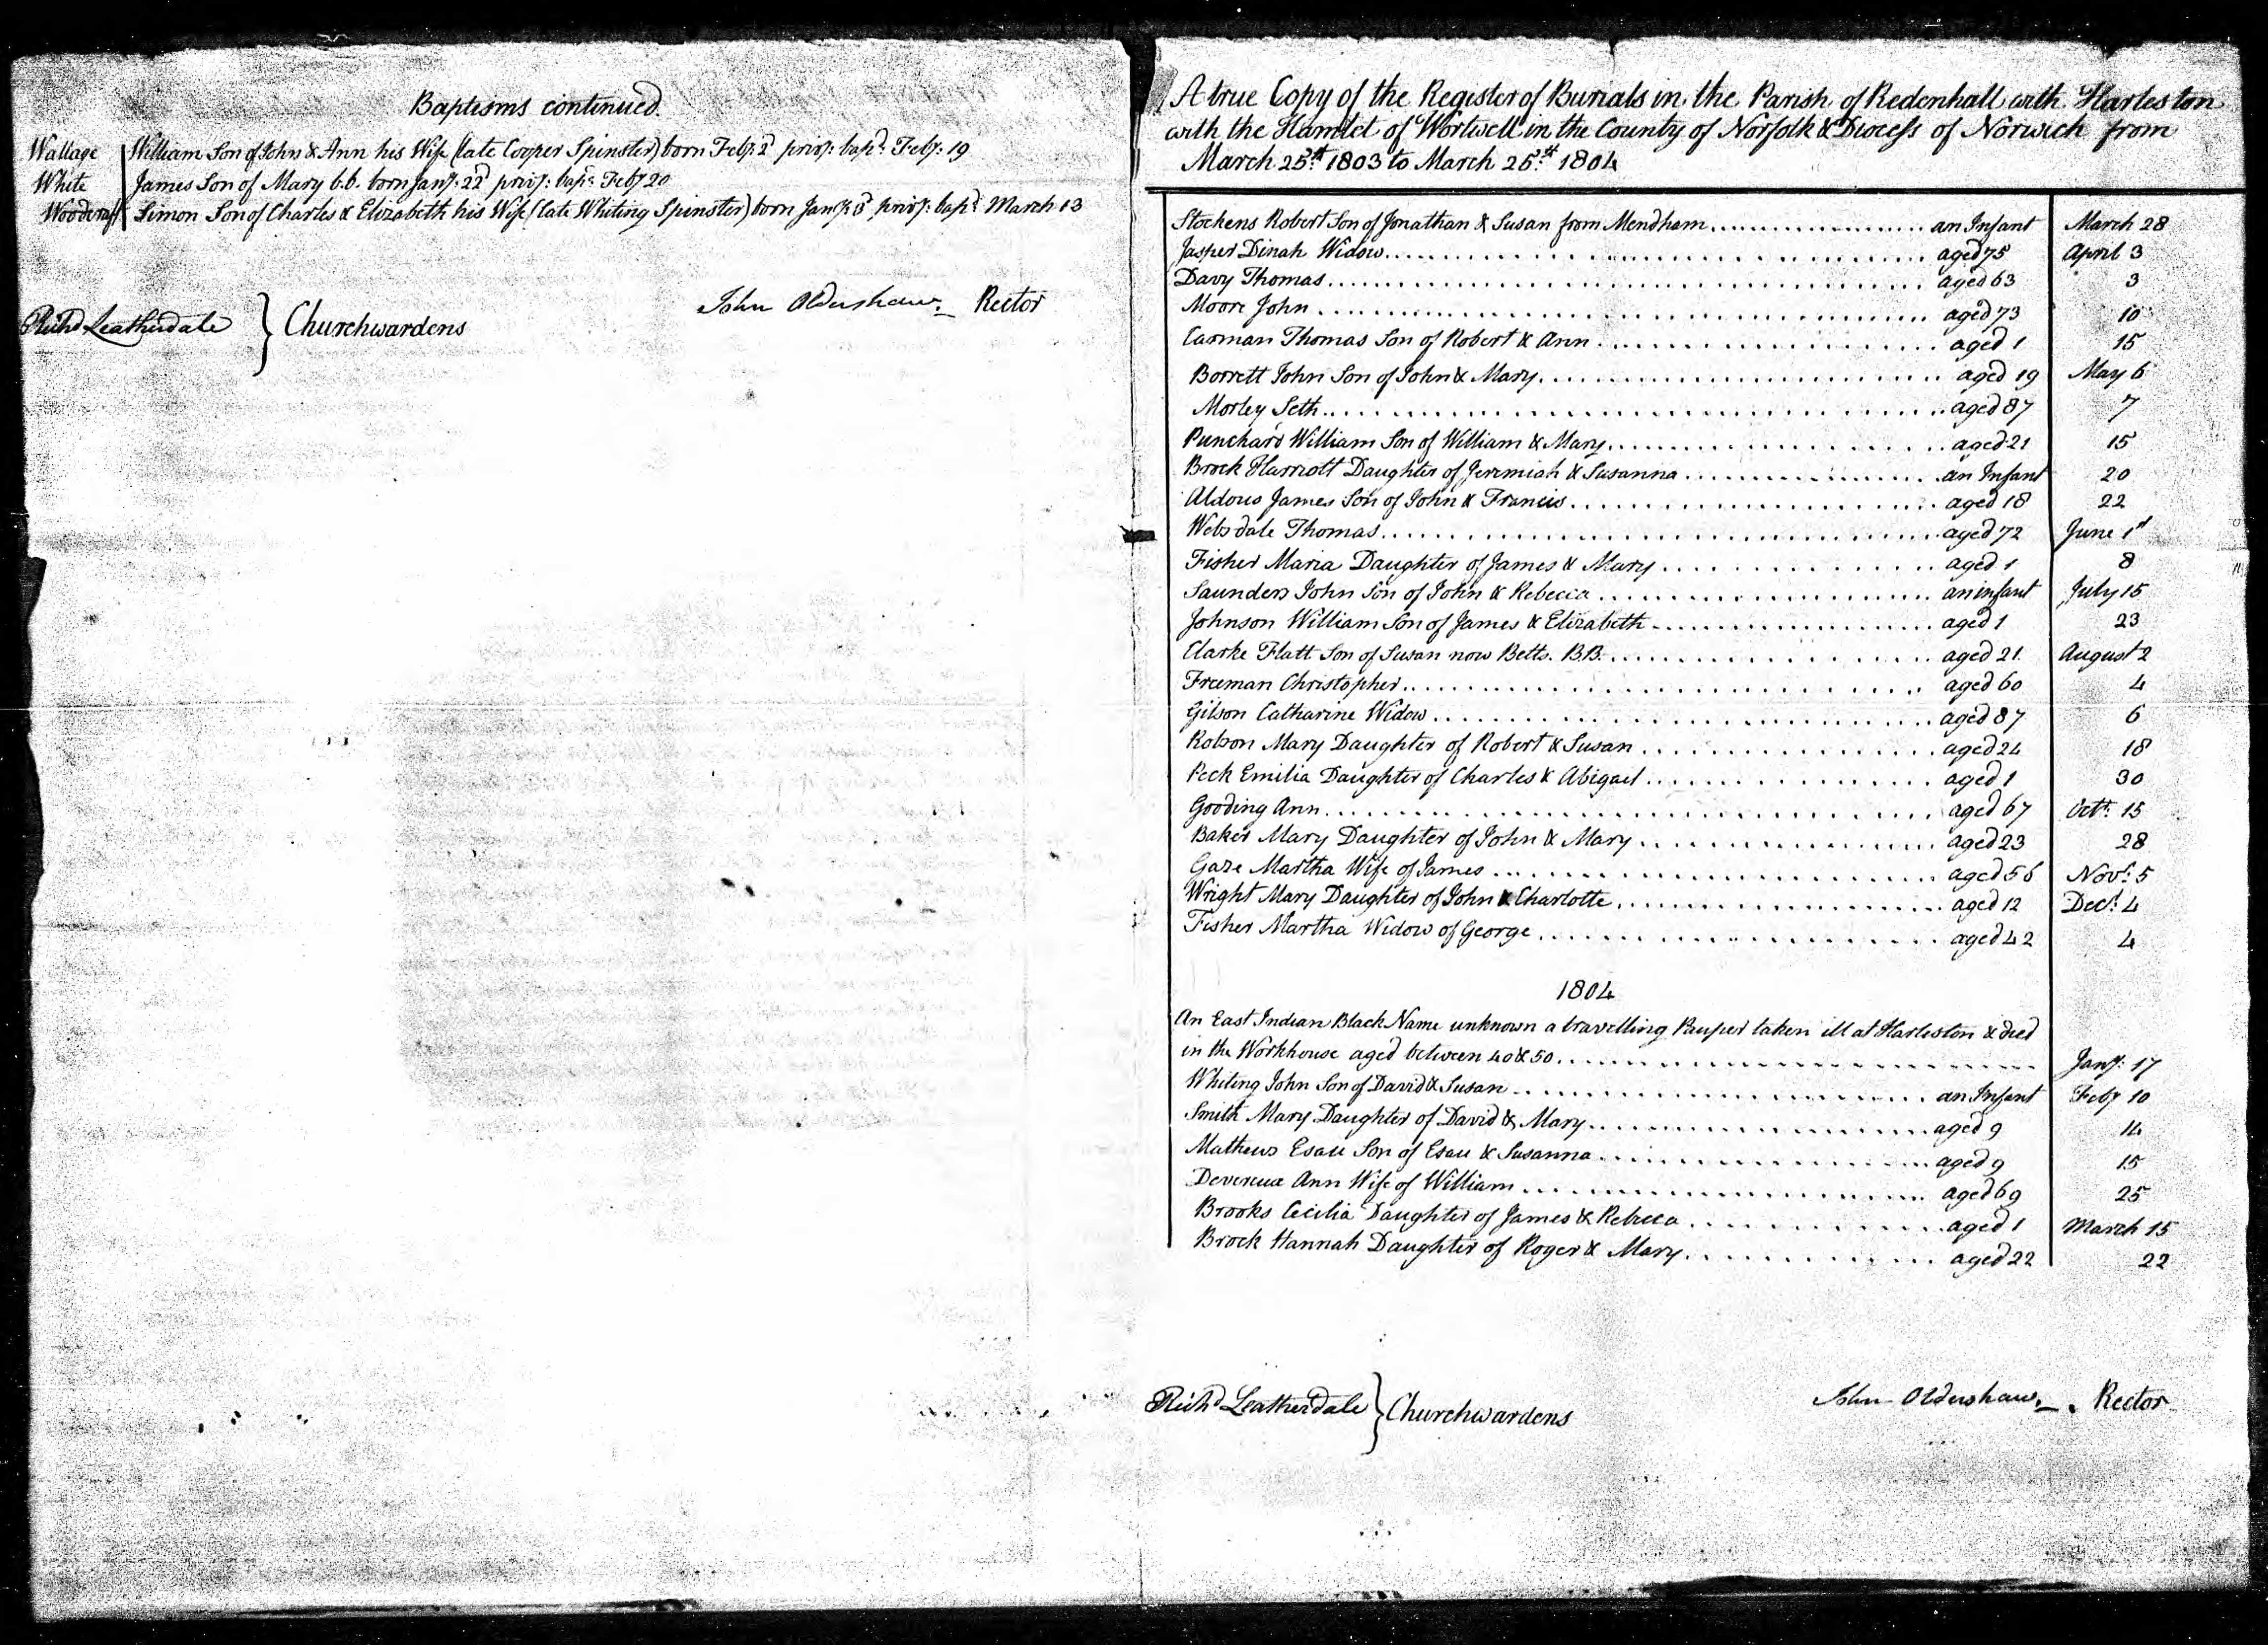 Baptisms continued.
Wallage William Son of John & Ann his Wife (late Cooper Spinster) born Feby: 2d privy: bapd. Feby: 19
White James Son of Mary b.b. born Jany: 22d privy: bapd. Feby 20
Woodcraft Simon Son of Charles & Elizabeth his Wife (late Whiting Spinster) born Jany: privy: bapd. March 13
John Oldershaw. Rector
Richd Leatherdale } Churchwardens
A true Copy of the Register of Burials in the Parish of Redenhall with Harleston
with the Hamlet of Wortwell in the County of Norfolk & Diocess of Norwich from
March 25th. 1803 to March 25th. 1804
Stockens Robert Son of Jonathan & Susan from Mendham an Infant March 28
Jasper Dinah Widow aged 75 April 3
Davy Thomas aged 63 3
Moore John aged 73 10
Carman Thomas Son of Robert & Ann aged 1 15
Borrett John Son of John & Mary aged 19 May 6
Morley Seth aged 87 7
Punchard William Son of William & Mary aged 21 15
Brock Harriott Daughter of Jeremiah & Susanna an Infant 20
Aldous James Son of John & Francis aged 18 22
Websdale Thomas aged 72 June 1st
Fisher Maria Daughter of James & Mary aged 1 8
Saunders John Son of John & Rebecca an infant July 15
Johnson William Son of James & Elizabeth aged 1 23
Clarke Flatt Son of Susan now Betts. B.B. aged 21 August 2
Freeman Christopher aged 60 4
Gilson Catharine Widow aged 87 6
Robson Mary Daughter of Robert & Susan aged 24 18
Peck Emilia Daughter of Charles & Abigael aged 1 30
Gooding Ann aged 67 Octr. 15
Baker Mary Daughter of John & Mary aged 23 28
Gaze Martha Wife of James aged 56 Novr. 5
Wright Mary Daughter of John & Charlotte aged 12 Decr. 4
Fisher Martha Widow of George aged 42 4
1804
An East Indian Black Name unknown a travelling Pauper taken ill at Harleston & died
in the Workhouse aged between 40 & 50 Jany: 17
Whiting John Son of David & Susan an Infant Feby 10
Smith Mary Daughter of David & Mary aged 9 14
Mathews Esau Son of Esau & Susanna aged 9 15
Devereux Ann Wife of William aged 69 25
Brooks Cecilia Daughter of James & Rebecca aged 1 March 15
Brock Hannah Daughter of Roger & Mary aged 22 22
Richd Leatherdale } Churchwardens John Oldershaw. Rector